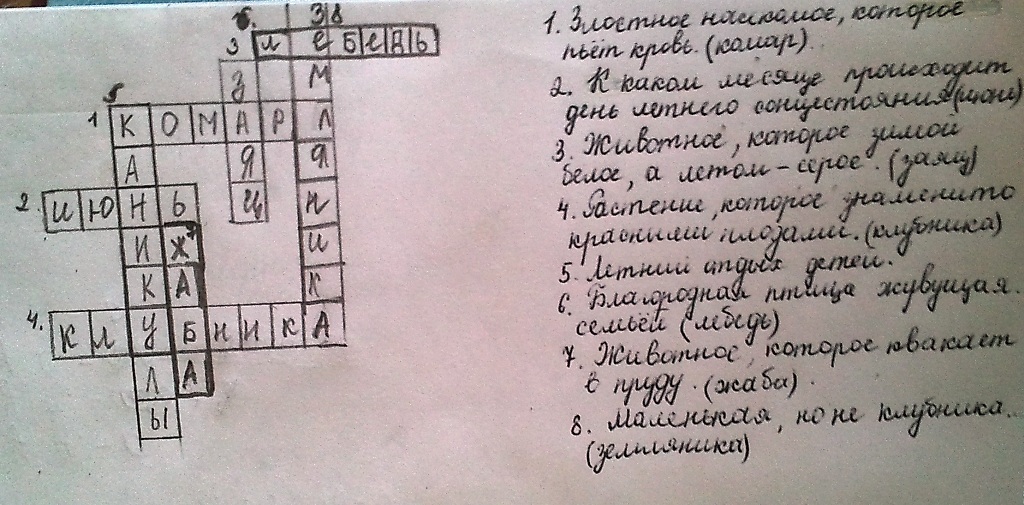 6. З 8
3 Л Е Б Е Д Ь
З М
5
1 К О М А Р Л
А Я Я
2. И Ю Н Ь Ц Н
И Ж 7 И
К А К
4. К Л У Б Н И К А
Л А
Ы
1. Злостное насикомое, которое
пьёт кровь. (комар).
2. К каком месяце происходит
день летнего сонцестояния (июнь)
3. Животное, которое зимой
белое, а летом - серое. (заяц)
4. Растение, которое знаменито
красными плозами. (клубника)
5. Летний атдых детей.
6. Благородная птица жувущая
семьёй (лебедь)
7. Животное, которое квакает
в пруду. (жаба).
8. Маленькая, но не клубника.
(земляника)